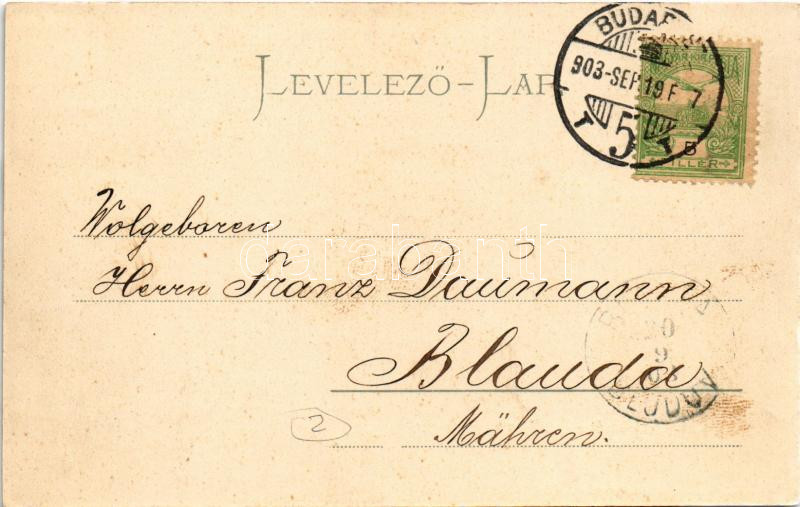 LEVELEZŐ-LAP
BUDAP
903-SEP.19 F 7
5
T T
5
FILLÉR
Wolgeboren
Herrn Franz Daumann
Blauda
Mähren.
20
9
03
BLUDOV
2
darabanth